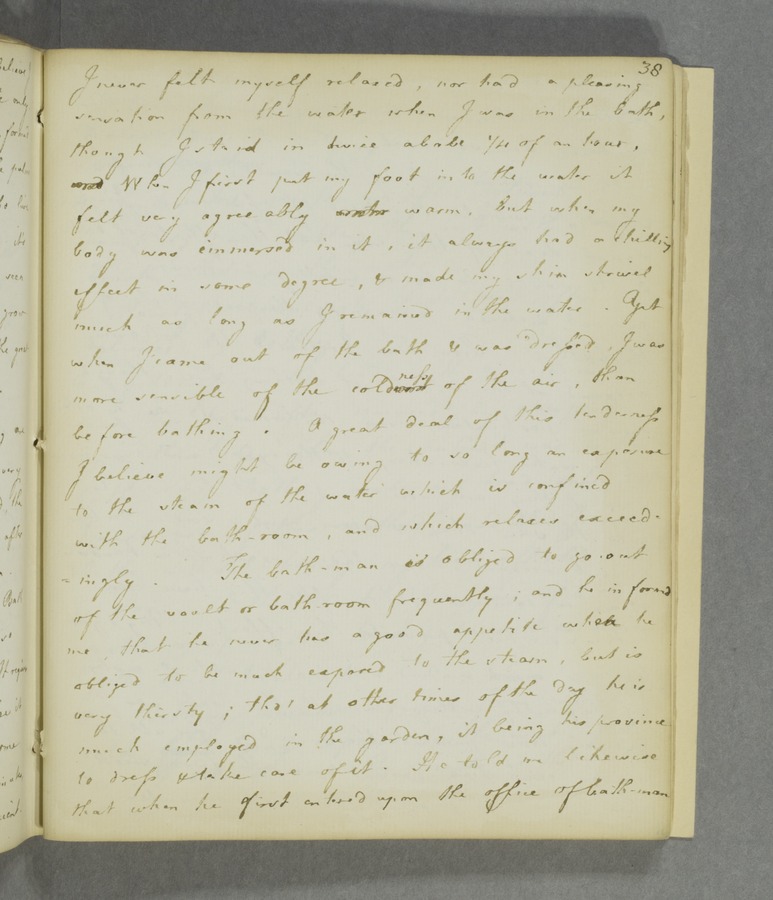 38
I never felt myself relaxed, nor had a pleasing
sensation from the water when I was in the bath,
though I staid in twice above 1/4 of an hour,
and When I first put my foot into the water it
felt very agreeably warm, but when my
body was immersed in it, it always had a chilling
effect in some degree, & made my skin shrivel
much as long as I remained in the water. Yet
when I came out of the bath & was dressed, I was
more sensible of the coldness of the air, than
before bathing. A great deal of this tenderness
I believe might be owing to so long an exposure
to the steam of the water which is confined
with the bath-room, and which relaxes exceed-
=ingly. The bath-man is obliged to go out
of the vault or bath-room frequently; and he informd
me, that he never has a good appetite when he
obliged to be much exposed to the steam, but is
very thirsty; tho' at other times of the day he is
much employed in the garden, it being his province
to dress & take care of it. He told me likewise
that when he first entered upon the office of bath-man